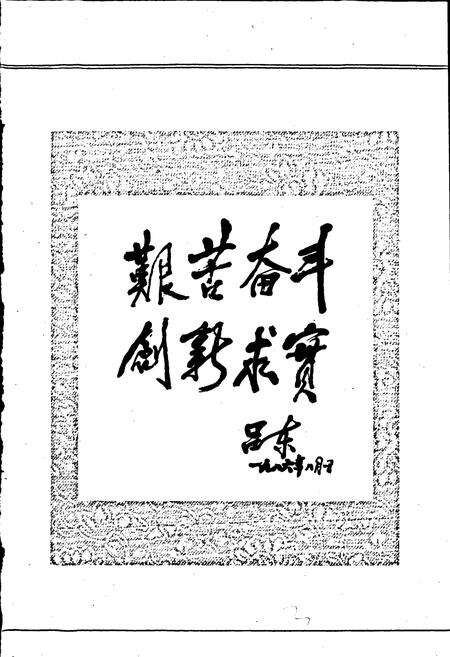 艱苦奋斗
創新求實
吕东
一九八六年八月一日